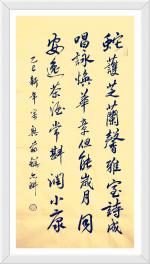 蛇護芝蘭馨雅室詩成
唱詠煥華章但能歲月同
安逸茶酒常斟潤小康
乙巳新年